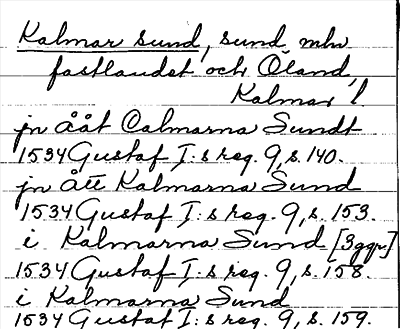 Kalmar sund, sund mln
fastlandet och Öland,
Kalmar l
jn ååt Calmarna Sundt
1534 Gustaf I:s reg. 9, s. 140.
jn ått Kalmarna Sund
1534 Gustaf I:s reg. 9, s. 153.
i Kalmarna Sund [3ggr]
1534 Gustaf I:s reg. 9, s. 158.
i Kalmarna Sund
1534 Gustaf I:s reg. 9, s. 159.